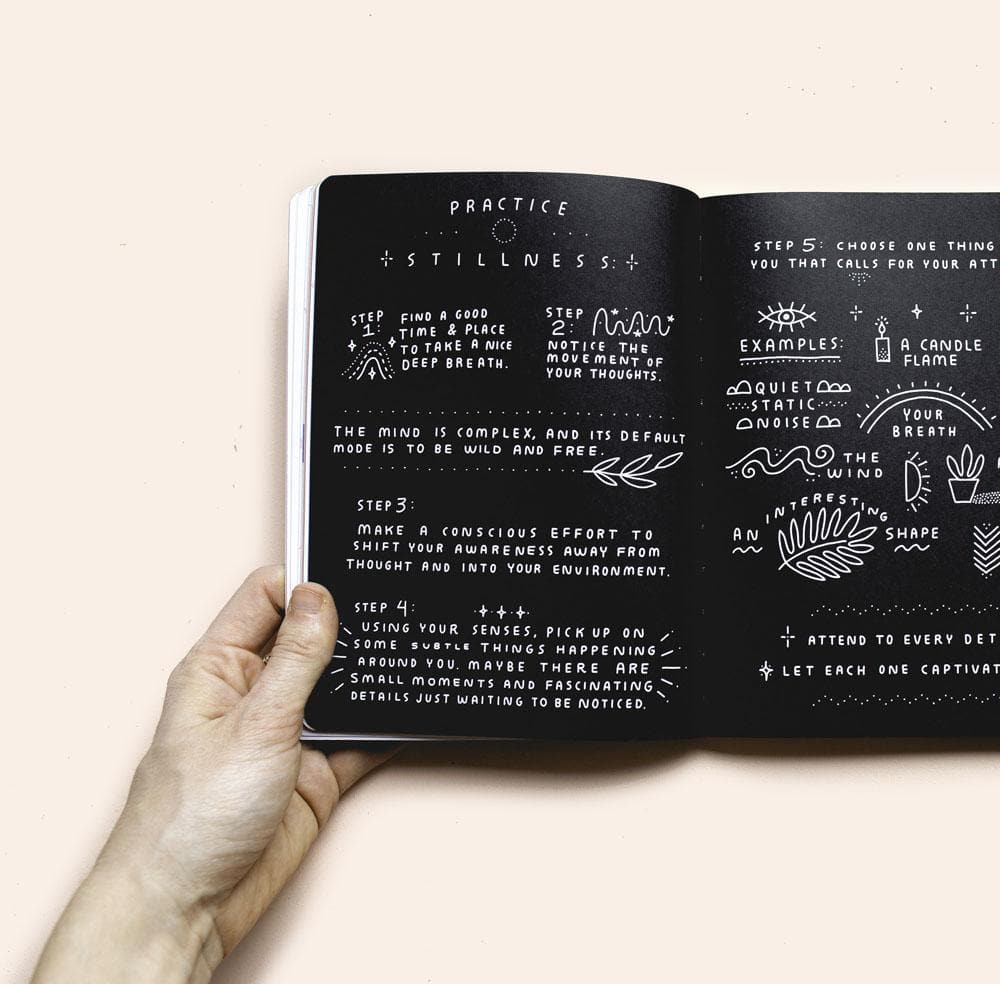 PRACTICE
STILLNESS:
STEP 1:
FIND A GOOD
TIME & PLACE
TO TAKE A NICE
DEEP BREATH.
STEP 2:
NOTICE THE
MOVEMENT OF
YOUR THOUGHTS.
THE MIND IS COMPLEX, AND ITS DEFAULT
MODE IS TO BE WILD AND FREE.
STEP 3:
MAKE A CONSCIOUS EFFORT TO
SHIFT YOUR AWARENESS AWAY FROM
THOUGHT AND INTO YOUR ENVIRONMENT.
STEP 4:
USING YOUR SENSES, PICK UP ON
SOME SUBTLE THINGS HAPPENING
AROUND YOU. MAYBE THERE ARE
SMALL MOMENTS AND FASCINATING
DETAILS JUST WAITING TO BE NOTICED.
STEP 5: CHOOSE ONE THING
YOU THAT CALLS FOR YOUR ATT
EXAMPLES:
A CANDLE
FLAME
QUIET
STATIC
NOISE
YOUR
BREATH
THE
WIND
AN INTERESTING SHAPE
ATTEND TO EVERY DET
LET EACH ONE CAPTIVAT